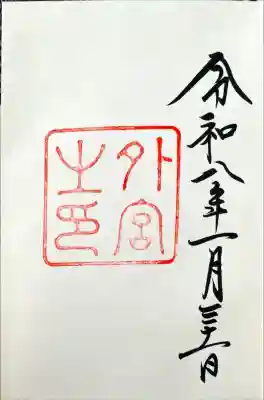 令和八年一月三十一日
外宮
之印